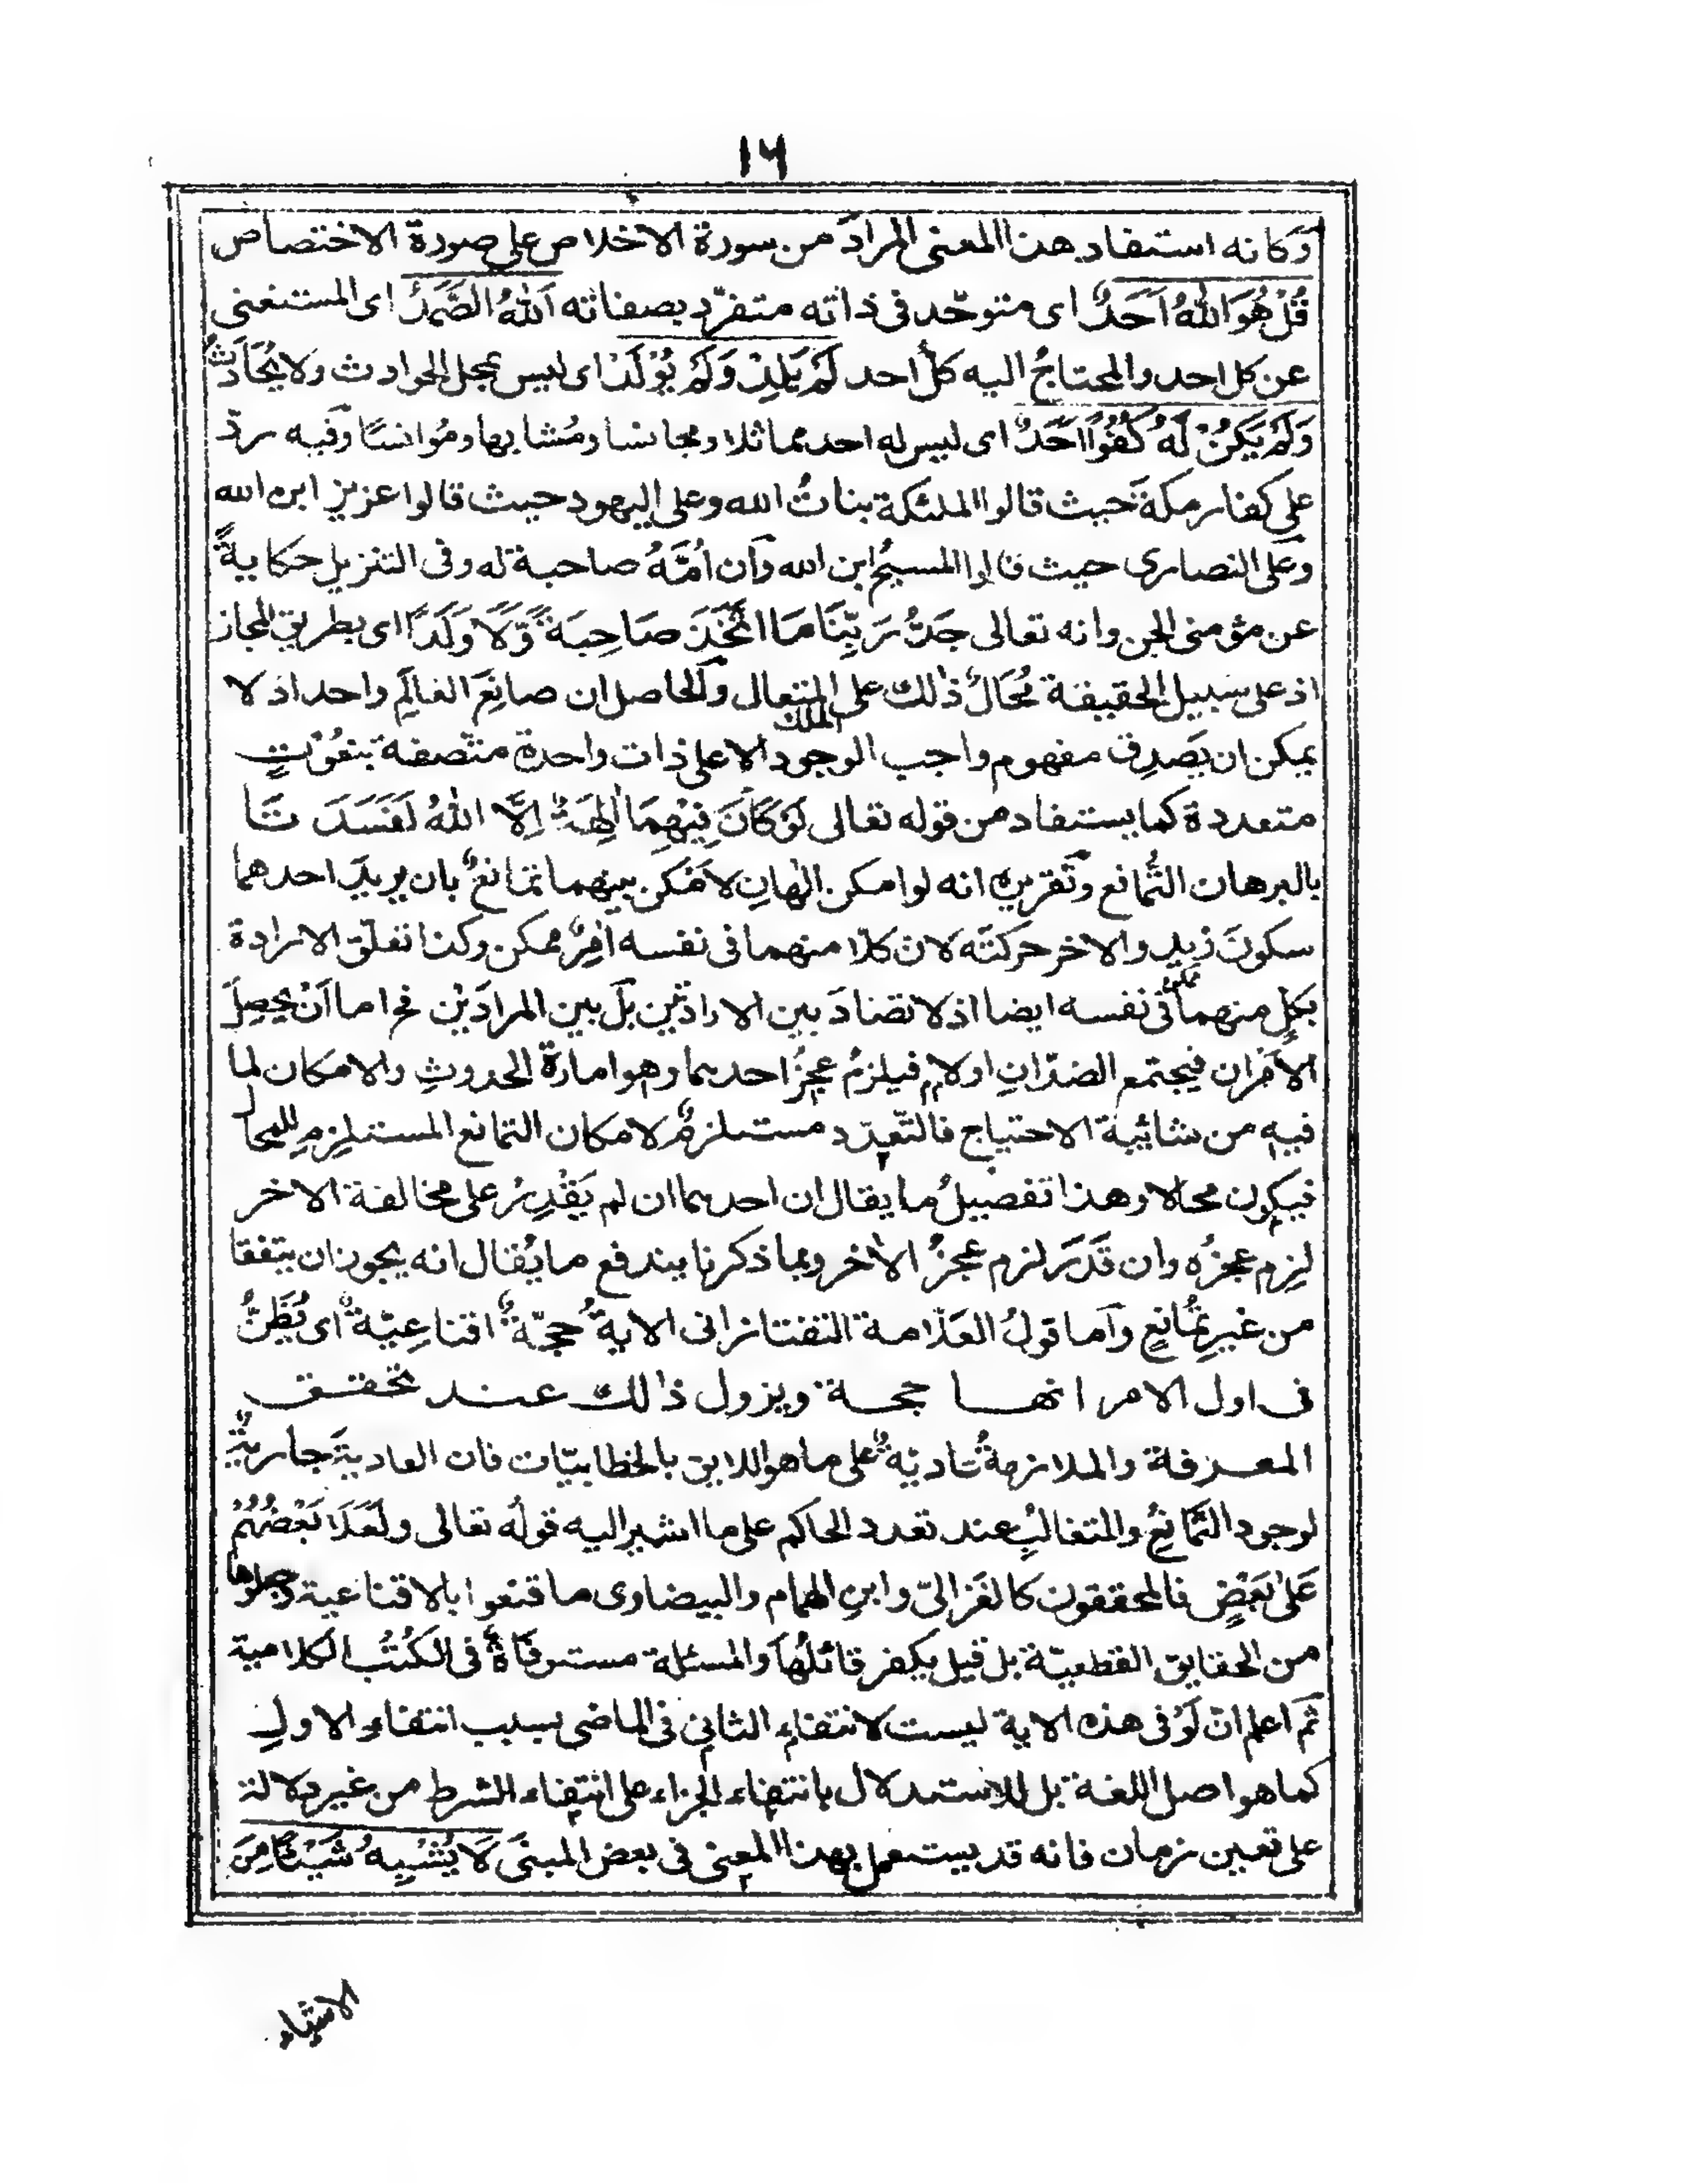 ١٦
وكانه استفاد هذا المعنى المراد من سورة الاخلاص على صورة الاختصاص
قُلْ هُوَ اللهُ اَحَدٌ اى متوحّد فى ذاته متفرّد بصفاته اَللهُ الصَّمَدُ اى المستغنى
عن كل احد والمحتاجُ اليه كلّ احد لَمْ يَلِدْ وَلَمْ يُوْلَدْ اى ليس بمحل الحوادث ولا بحَادثٍ
وَلَمْ يَكُنْ لَهُ كُفُوًا اَحَدٌ اى ليس له احد مماثلا ومجانسا ومُشابها ومُوانسًا وفيه ردّ
على كفار مكة حيث قالوا الملئكة بناتُ الله وعلى اليهود حيث قالوا عزير ابن الله
وعلى النصارى حيث قالوا المسيحُ ابن الله وان اُمَّهُ صاحبة له وفى التنزيل حكايةً
عن مؤمنى الجن وانه تعالى جَدُّ رَبِّنَا مَا اتَّخَذَ صَاحِبَةً وَّلَا وَلَدًا اى بطريق المجاز
اذ على سبيل الحقيقة مُحَالٌ ذلك على الملك المتعال والحاصل ان صانِعَ العالَم واحد اذ لا
يمكن ان يَصَدِق مفهوم واجب الوجود الا على ذات واحدة متّصفة بنعُوْتٍ
متعددة كما يستفاد من قوله تعالى لَوْ كَانَ فِيْهِمَا اٰلِهَةٌ اِلَّا اللهُ لَفَسَدَتَا
بالبرهان التُّمانع وتقريره انه لو امكن الٰهانِ لامْكن بينهما تمانعٌ بان يريدَ احدهما
سكونَ زيدٍ والاخر حركتَه لان كلّا منهما فى نفسه امرٌ ممكن وكذا تعلّق الارادة
بكلٍ منهما ممكن فى نفسه ايضا اذ لا تضادَ بين الارادتَين بل بين المرادَيْن فح اما اَنْ يحصِلَ
الاَمْران فيجتمع الضدّانِ او لا فيلزمُ عجزُ احدهما وهو امارة الحدوثِ والامكان لما
فيه من شائبة الاحتياج فالتّعدّد مستلزمٌ لامكان التمانع المستلزِمِ للمحال
فيكون محالا وهذا تفصيلُ ما يقال ان احدهما ان لم يَقْدِرْ على مخالفة الاخر
لزم عجزُه وان قَدَرَ لزم عجزُ الاٰخر وبما ذكرنا يندفع ما يُقال انه يجوز ان يتفقا
من غير تمانعٍ واما قولُ العلّامة التفتازانى الايةُ حجّةٌ اقناعِيّةٌ اى يُظَنُّ
فى اول الامر انها حجة ويزول ذلك عند تحقق
المعرفة والملازمةُ عاديّةٌ على ما هو اللايق بالخطابيّات فان العاديةَ جاريةٌ
لوجود التَّمانُعِ والتغالبِ عند تعدد الحاكم على ما اشير اليه قولُه تعالى ولَعَلَا بَعْضُهُمْ
عَلٰى بَعْضٍ فالمحققون كالغَزالىّ وابنِ الهمام والبيضاوى ما قنعوا بالاقناعية وجعلوها
من الحقايق القطعيّة بل قيل يكفر قائلُها والمسئلة مستوفاةٌ فى الكُتُب الكلامية
ثم اعلم انّ لَوْ فى هذه الاية ليست لانتفاءِ الثانى فى الماضى بسبب انتفاء الاولِ
كما هو اصل اللغة بل للاستدلال بانتفاء الجزاء على انتفاء الشرط من غير دلالة
على تعيين زمان فانه قد يستعمل بهذا المعنى فى بعض المبنَى لَا يُشْبِهُ شَيْئًا مِنَ
الاشياء